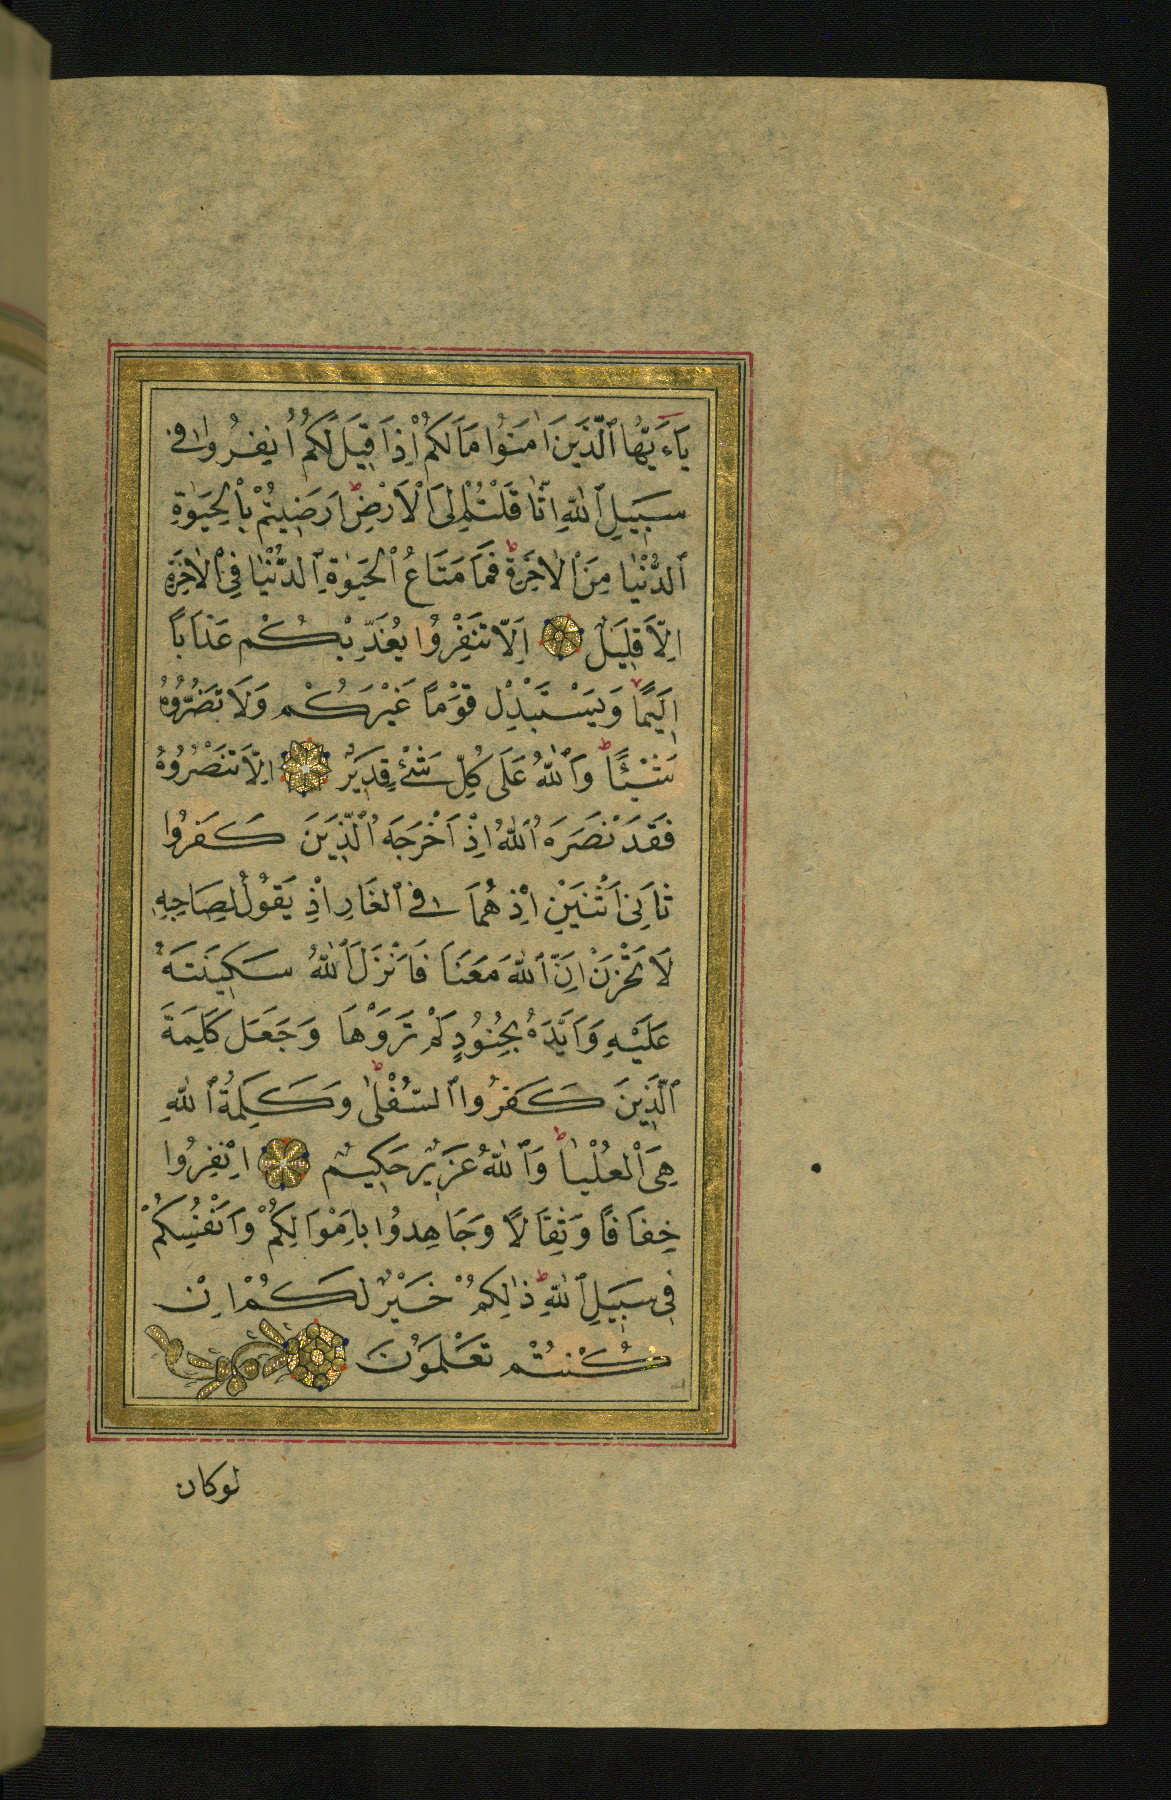 يَاءَيُّهَا ٱلَّذِينَ اٰمَنُوا مَا لَكُمْ اِذَا قِيلَ لَكُمُ انْفِرُوا فِى
سَبِيلِ ٱللّٰهِ اثَّاقَلْتُمْ اِلَى الْاَرْضِ ط اَرَضِيتُمْ بِالْحَيٰوةِ
ٱلدُّنْيَا مِنَ ٱلْاٰخِرَةِ ط فَمَا مَتَاعُ ٱلْحَيٰوةِ ٱلدُّنْيَا فِى ٱلْاٰخِرَةِ
اِلَّا قَلِيلٌ اِلَّا تَنْفِرُوا يُعَذِّبْكُمْ عَذَابًا
اَلِيمًا وَيَسْتَبْدِلْ قَوْمًا غَيْرَكُمْ وَلَا تَضُرُّوهُ
شَيْئًا ط وَٱللّٰهُ عَلَى كُلِّ شَىْءٍ قَدِيرٌ اِلَّا تَنْصُرُوهُ
فَقَدْ نَصَرَهُ ٱللّٰهُ اِذْ اَخْرَجَهُ ٱلَّذِينَ كَفَرُوا
ثَانِىَ اثْنَيْنِ اِذْ هُمَا فِى ٱلْغَارِ اِذْ يَقُولُ لِصَاحِبِهِ
لَا تَحْزَنْ اِنَّ ٱللّٰهَ مَعَنَا فَاَنْزَلَ ٱللّٰهُ سَكِينَتَهُ
عَلَيْهِ وَاَيَّدَهُ بِجُنُودٍ لَمْ تَرَوْهَا وَجَعَلَ كَلِمَةَ
ٱلَّذِينَ كَفَرُوا ٱلسُّفْلٰى ط وَكَلِمَةُ ٱللّٰهِ
هِىَ الْعُلْيَا ط وَٱللّٰهُ عَزِيزٌ حَكِيمٌ اِنْفِرُوا
خِفَافًا وَثِقَالًا وَجَاهِدُوا بِاَمْوَالِكُمْ وَاَنْفُسِكُمْ
فِى سَبِيلِ ٱللّٰهِ ط ذٰلِكُمْ خَيْرٌ لَكُمْ اِنْ
كُنْتُمْ تَعْلَمُونَ
لوكان